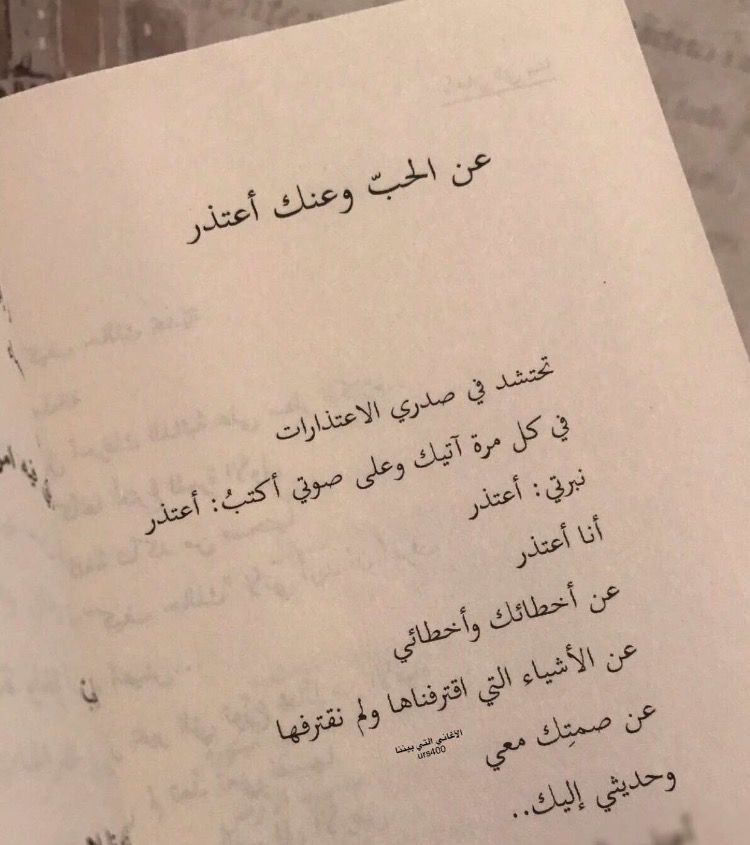 عن الحبّ وعنك أعتذر
تحتشد في صدري الاعتذارات
في كل مرة آتيك وعلى صوتي أكتبُ: أعتذر
نبرتي: أعتذر
أنا أعتذر
عن أخطائك وأخطائي
عن الأشياء التي اقترفناها ولم نقترفها
عن صمتِك معي
وحديثي إليك..
الإغاني التي بيننا
urs400